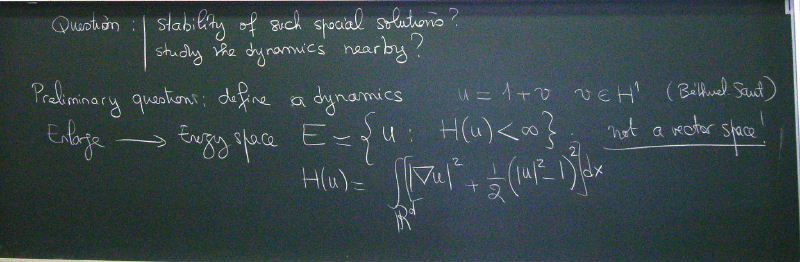 Question : stability of such special solutions?
study the dynamics nearby?
Preliminary questions: define a dynamics u = 1 + v v ∈ H¹ (Béthuel Saut)
Enlarge → Energy space E = { u : H(u) < ∞ } . not a vector space!
H(u) = ∫∫_{ℝ^d} [|∇u|² + 1/2 (|u|² - 1)²] dx